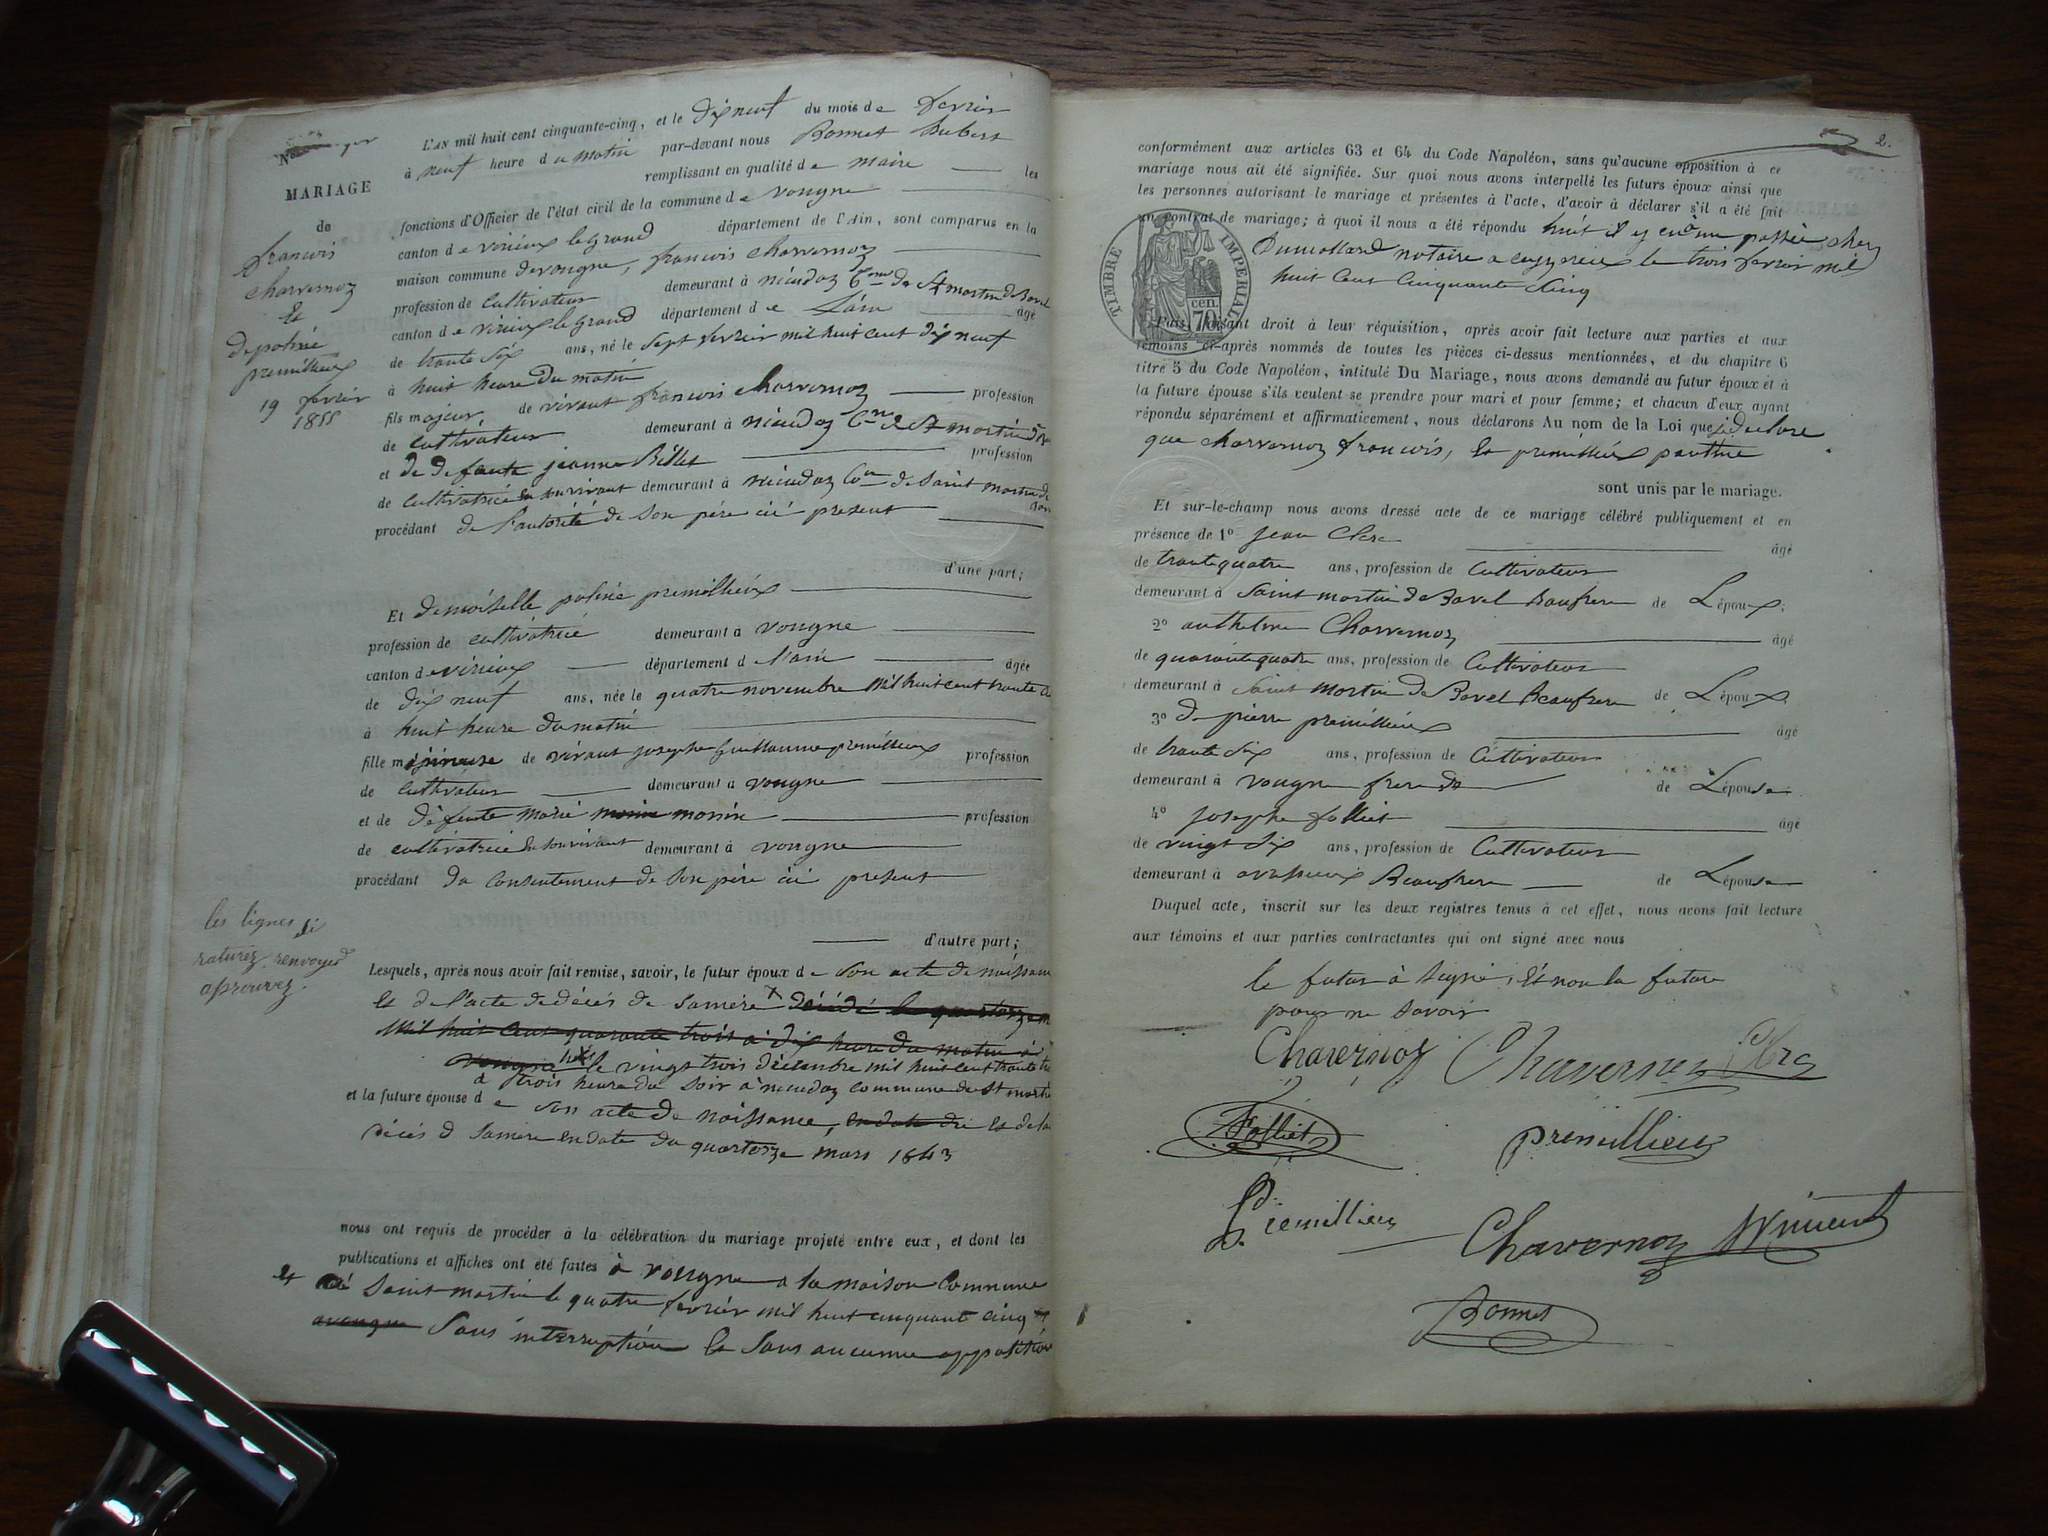 L'AN mil huit cent cinquante-cinq, et le dix neuf du mois de fevrier
à neuf heure du matin par-devant nous Bonnet hubert
remplissant en qualité de maire les
fonctions d'Officier de l'état civil de la commune de vongne
canton de virieux le grand département de l'Ain, sont comparus en la
maison commune de vongne, francois charvernoz
profession de cultivateur demeurant à nieudoz Cne de St martin de Bavel
canton de virieux le grand département de L'ain âgé
de trante six ans, né le sept fevrier mil huit cent dix neuf
à huit heure du matin
fils majeur de vivant francois charvernoz profession
de cultivateur demeurant à nieudoz Cne de St martin de
et de defeunte jeanne Billet profession
de cultivatrice en son vivant demeurant à nieudoz Cne de Saint martin de
procédant de l'autorité de son père ici present
d'une part;
Et demoiselle poliné premillieux
profession de cultivatrice demeurant à vongne
canton de virieux département de l'ain âgée
de dix neuf ans, née le quatre novembre mil huit cent trante
à huit heure du matin
fille mineure de vivant josephe Guillaume premillieux profession
de cultivateur demeurant à vongne
et de défeunte marie morin profession
de cultivatrice en son vivant demeurant à vongne
procédant du consentement de son père ici present
d'autre part;
Lesquels, après nous avoir fait remise, savoir, le futur époux de son acte de naissance
et de l'acte de décés de sa mère x décédé le quatorze
mil huit cent quarante trois à dix heure du matin à
vongne le vingt trois décembre mil huit cent trante
à trois heure du soir à nieudoz commune de St martin
et la future épouse de son acte de naissance, en date du et de
décés d sa mère en date du quatorze mars 1843
nous ont requis de procéder à la célébration du mariage projeté entre eux, et dont les
publications et affiches ont été faites à vongne a la maison commune
et à Saint martin le quatre fevriér mil huit cinquant cinq
a vongne sans interruption et sans aucunne opposition
No
MARIAGE
de
francois
charvernoz
Et
de poliné
premillieux
19 fevrier
1855
les lignes
raturez renvoyé
approuvez.
2.
conformément aux articles 63 et 64 du Code Napoléon, sans qu'aucune opposition à ce
mariage nous ait été signifiée. Sur quoi nous avons interpellé les futurs époux ainsi que
les personnes autorisant le mariage et présentes à l'acte, d'avoir à déclarer s'il a été fait
un contrat de mariage; à quoi il nous a été répondu il y en a un passée chez
Dumollard notaire a le trois fevrier mil
huit cent cinquante cinq
TIMBRE IMPERIAL
70 cen.
Puis, faisant droit à leur réquisition, après avoir fait lecture aux parties et aux
témoins ci-après nommés de toutes les pièces ci-dessus mentionnées, et du chapitre 6
titre 5 du Code Napoléon, intitulé Du Mariage, nous avons demandé au futur époux et à
la future épouse s'ils veulent se prendre pour mari et pour femme; et chacun d'eux ayant
répondu séparément et affirmativement, nous déclarons Au nom de la Loi que je declare
que charvernoz francois, et premillieux
sont unis par le mariage.
Et sur-le-champ nous avons dressé acte de ce mariage célébré publiquement et en
présence de 1º jean Clerc âgé
de trante quatre ans, profession de Cultivateur
demeurant à Saint martin de Bavel Baufrere de L'époux;
2º anthelme Charvernoz âgé
de quarante quatre ans, profession de Cultivateur
demeurant à Saint martin de Bavel Beaufrere de L'époux
3º de pierre premillieux âgé
de trante six ans, profession de Cultivateur
demeurant à vongne frere de L'épouse
4º josephe folliet âgé
de vingt six ans, profession de Cultivateur
demeurant à avassieux Beaufrere de L'épouse
Duquel acte, inscrit sur les deux registres tenus à cet effet, nous avons fait lecture
aux témoins et aux parties contractantes qui ont signé avec nous
le futur à signé, et non la future
pour ne savoir
Chavernoz Chavernoz Clerc
Folliet premillieux
Premillieux Chavernoz Vincent
Bonnet